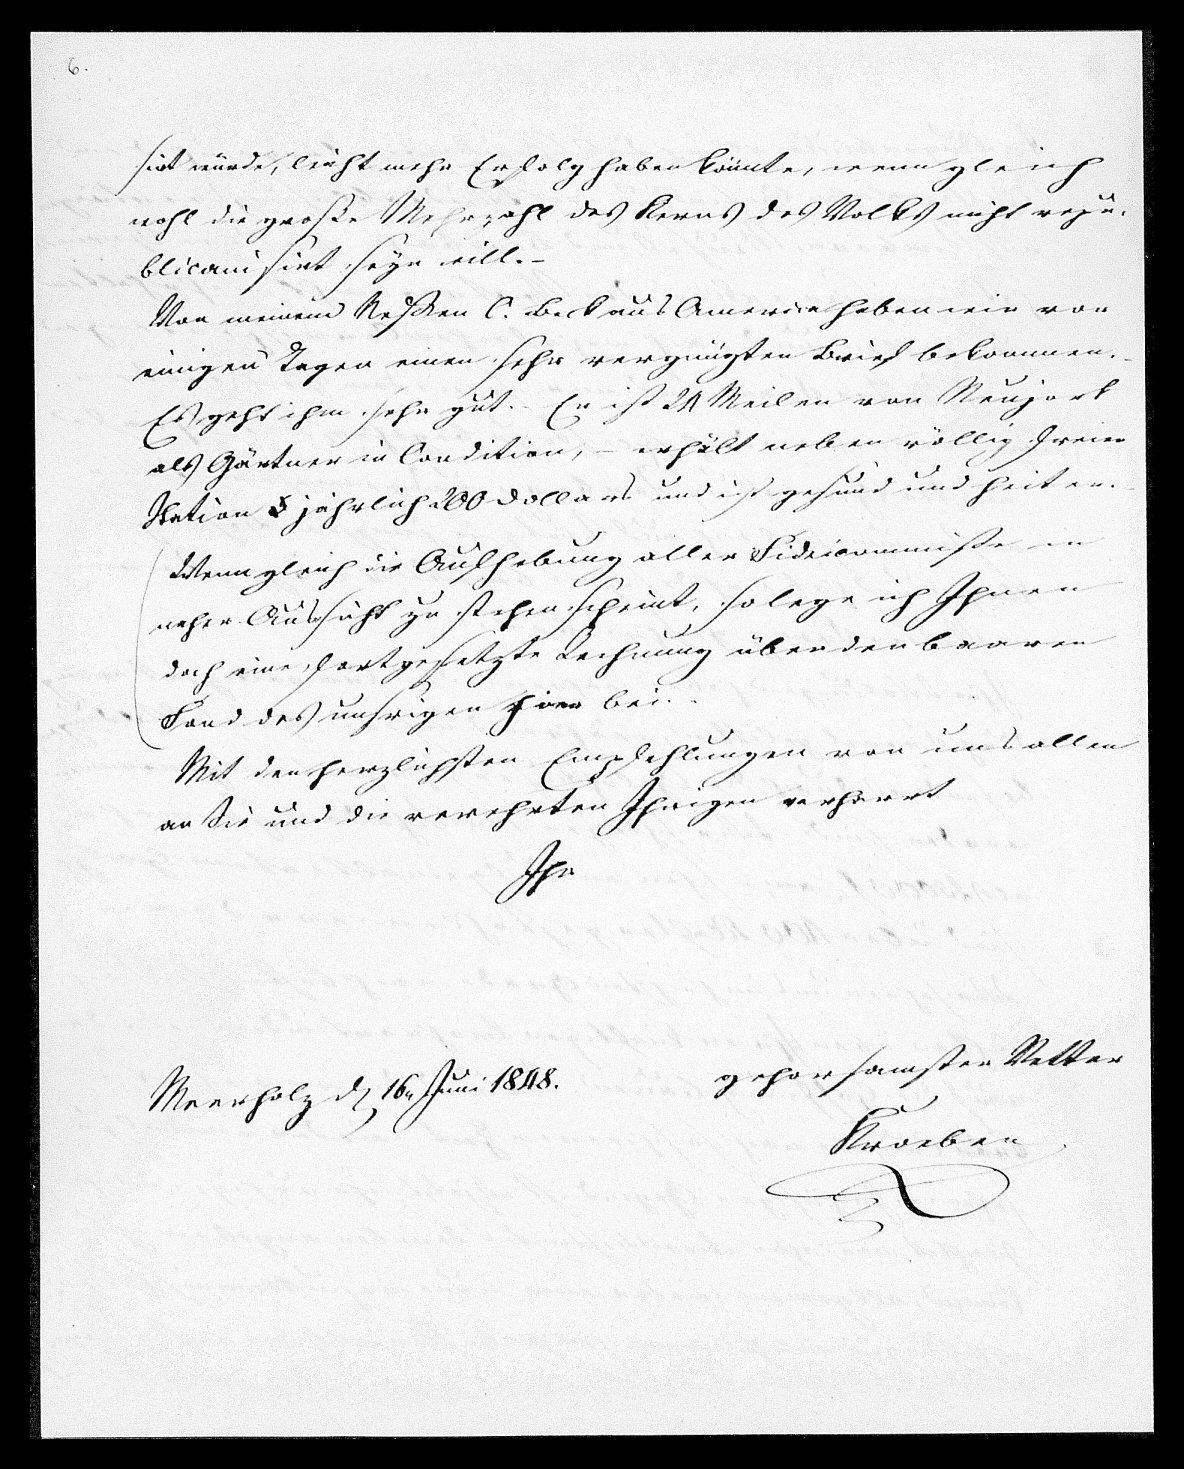 6.
sirt würde, leicht mehr Erfolg haben könnte, wenn gleich
wohl die große Mehrzahl des Kerns des Volks nicht repu-
blicanisirt seyn will. –
Von meinem Neffen C. Beck aus America haben wir vor
einigen Tagen einen sehr vergnügten Brief bekommen. –
Es geht ihm sehr gut. – Er ist 24 Meilen von Neujork
als Gärtner in Condition, – erhält neben völlig freier
Station jährlich 200 Dollars und ist gesund und heiter. –
Wenn gleich die Aufhebung aller Fideicommiße in
naher Aussicht zu stehen scheint, so lege ich Ihnen
doch eine fortgesetzte Rechnung über den baaren
Fond des unsrigen hier bei. –
Mit den herzlichsten Empfehlungen von uns allen
an Sie und die verehrten Ihrigen verharrt
Ihr
gehorsamster Vetter
Meerholz d. 16n Juni 1848.
Kroeben